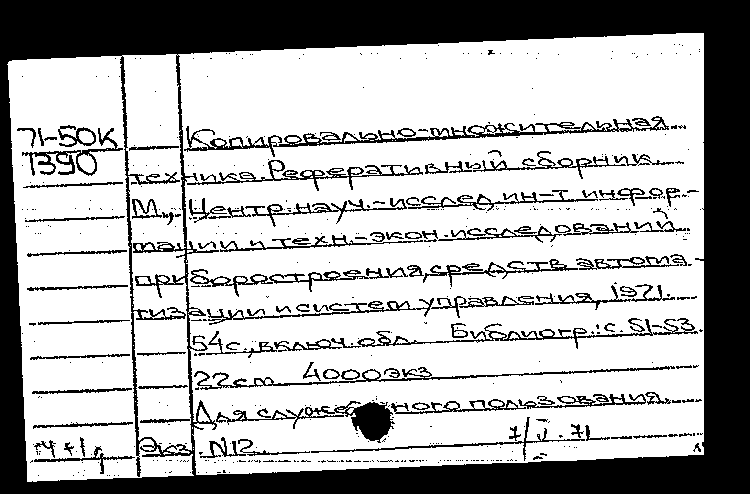 71-50К Копировально-множительная
1390 техника. Реферативный сборник.
М., Центр. науч.-исслед. ин-т инфор-
мации и техн.-экон. исследований
приборостроения, средств автома-
тизации и систем управления, 1971.
54с., включ. обл. Библиогр.: с. 51-53.
22см 4000экз
Для служебного пользования.
Экз. N12. 71